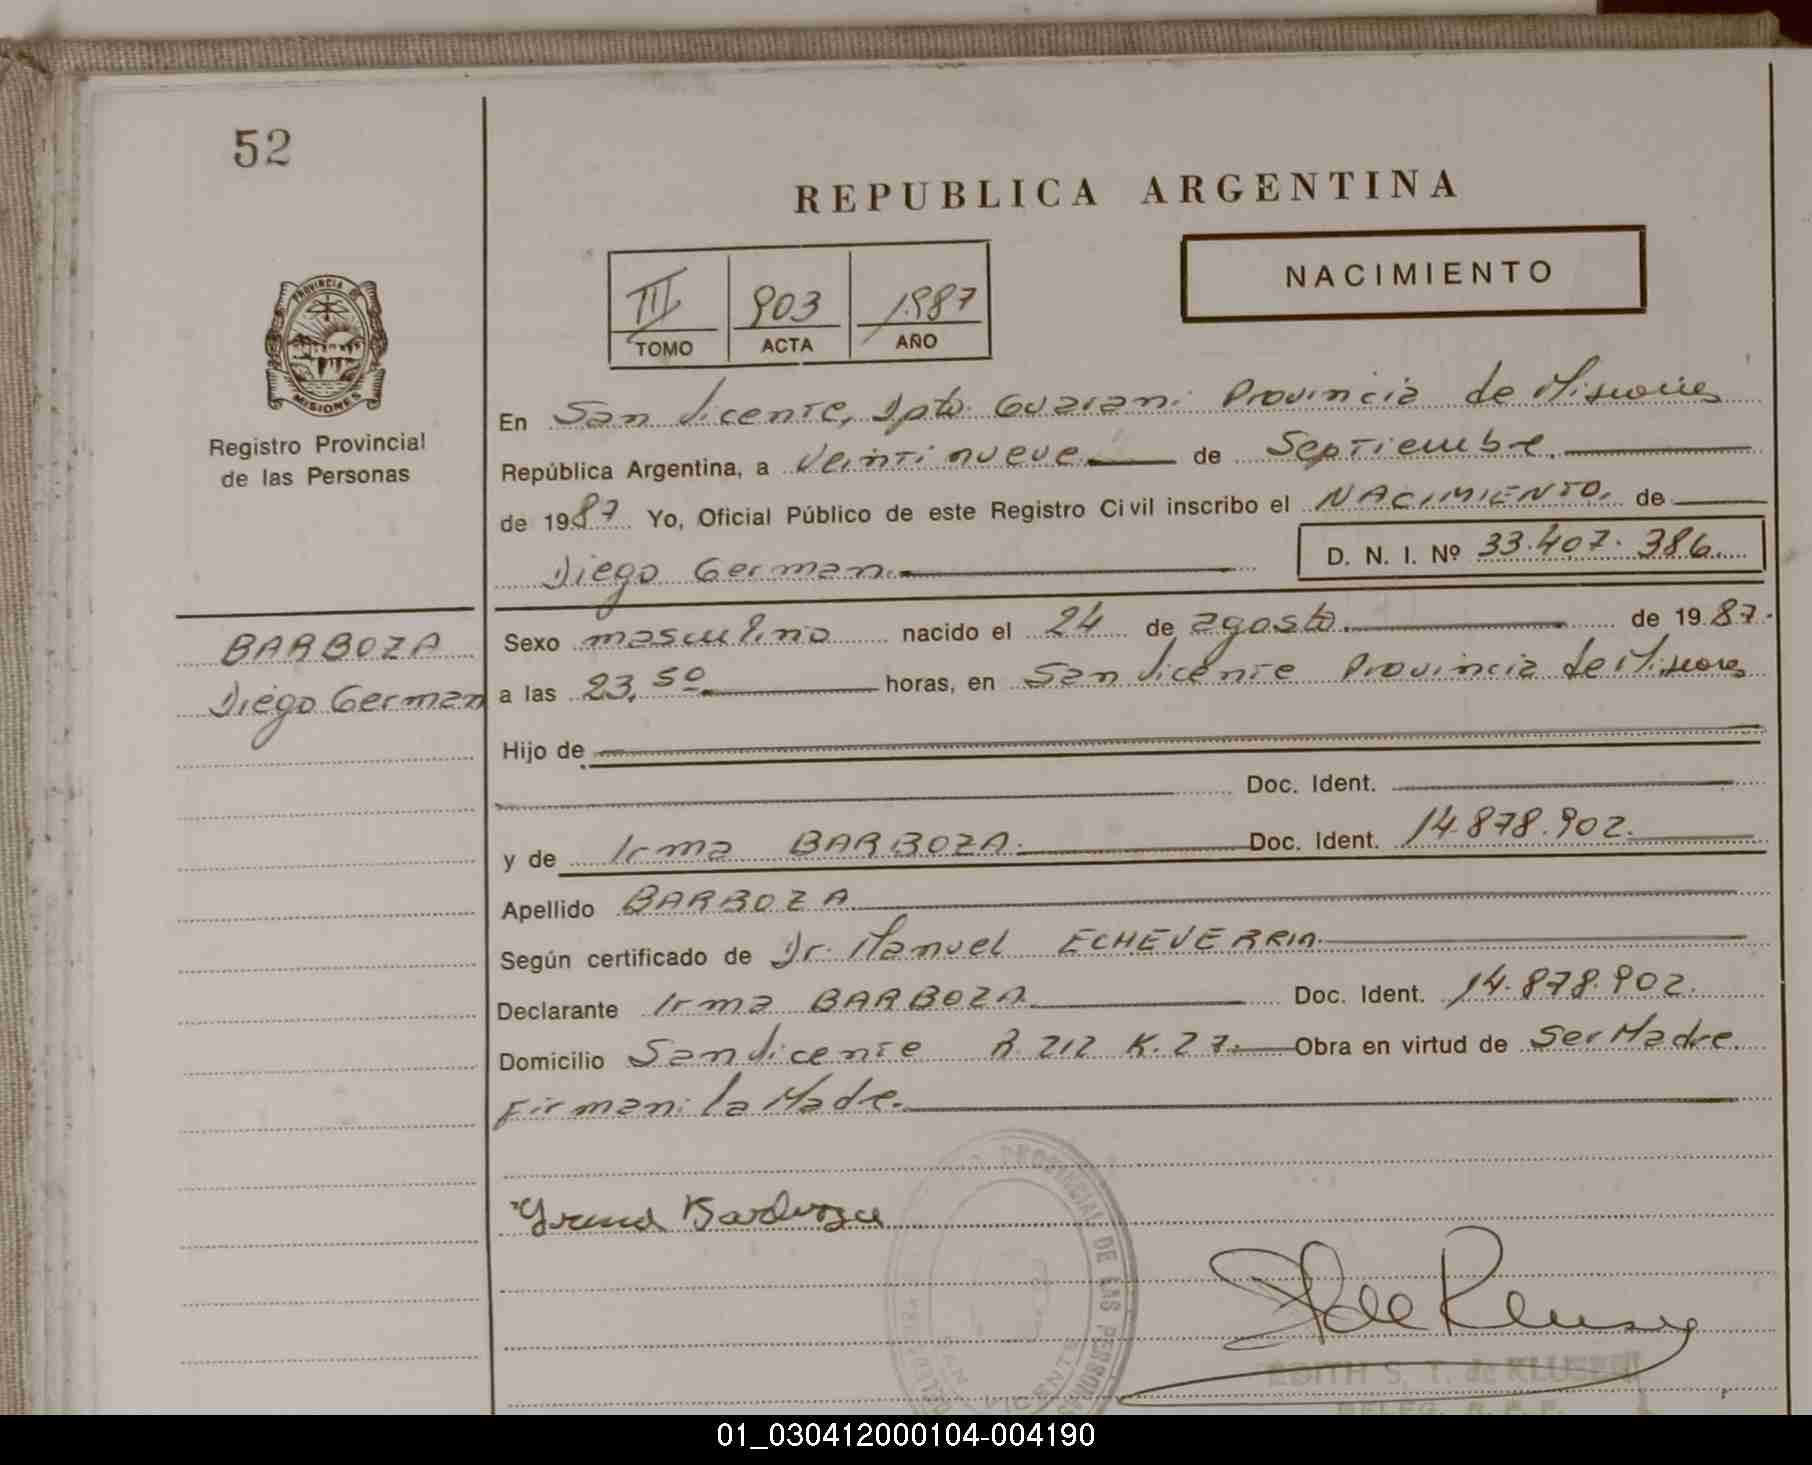 52
REPUBLICA ARGENTINA
NACIMIENTO
III 903 1987
TOMO ACTA AÑO
PROVINCIA DE
MISIONES
Registro Provincial
de las Personas
En San Vicente, Dpto. Guarani Provincia de Misiones
República Argentina, a Veintinueve de Septiembre.
de 1987 Yo, Oficial Público de este Registro Civil inscribo el NACIMIENTO. de
Diego German. D. N. I. Nº 33.407.386.
BARBOZA
Diego German
Sexo masculino nacido el 24 de agosto. de 1987.
a las 23,50 horas, en San Vicente Provincia de Misiones
Hijo de
Doc. Ident.
y de Irma BARBOZA. Doc. Ident. 14.878.902.
Apellido BARBOZA
Según certificado de Dr. Manuel ECHEVERRIA.
Declarante Irma BARBOZA Doc. Ident. 14.878.902.
Domicilio San Vicente R. 212 K. 27. Obra en virtud de Ser Madre.
Firman: la Madre.
Barboza
PROVINCIAL DE LAS
VICENTE
EDITH S. T. de KLUSENER
01_030412000104-004190